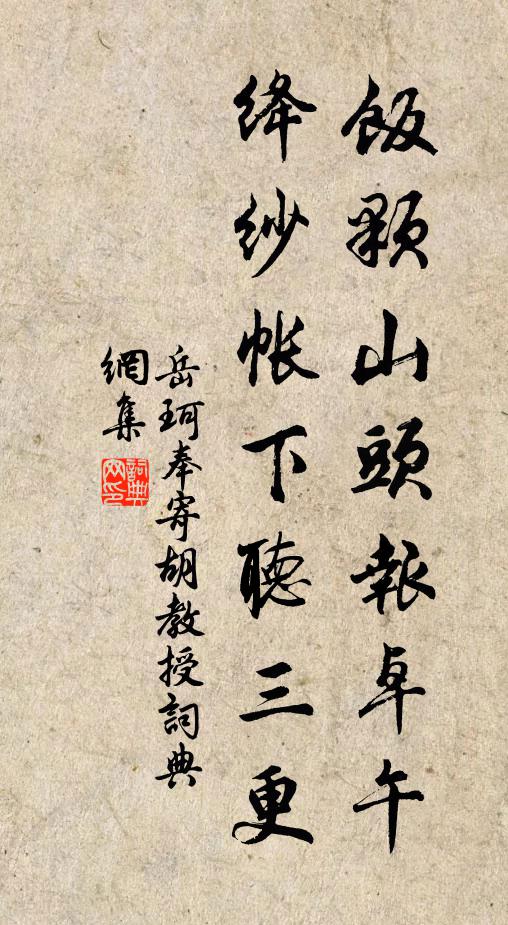 飯顆山頭報卓午
絳紗帳下聽三更
岳珂奉寄胡教授詞典
網集
詞典網印